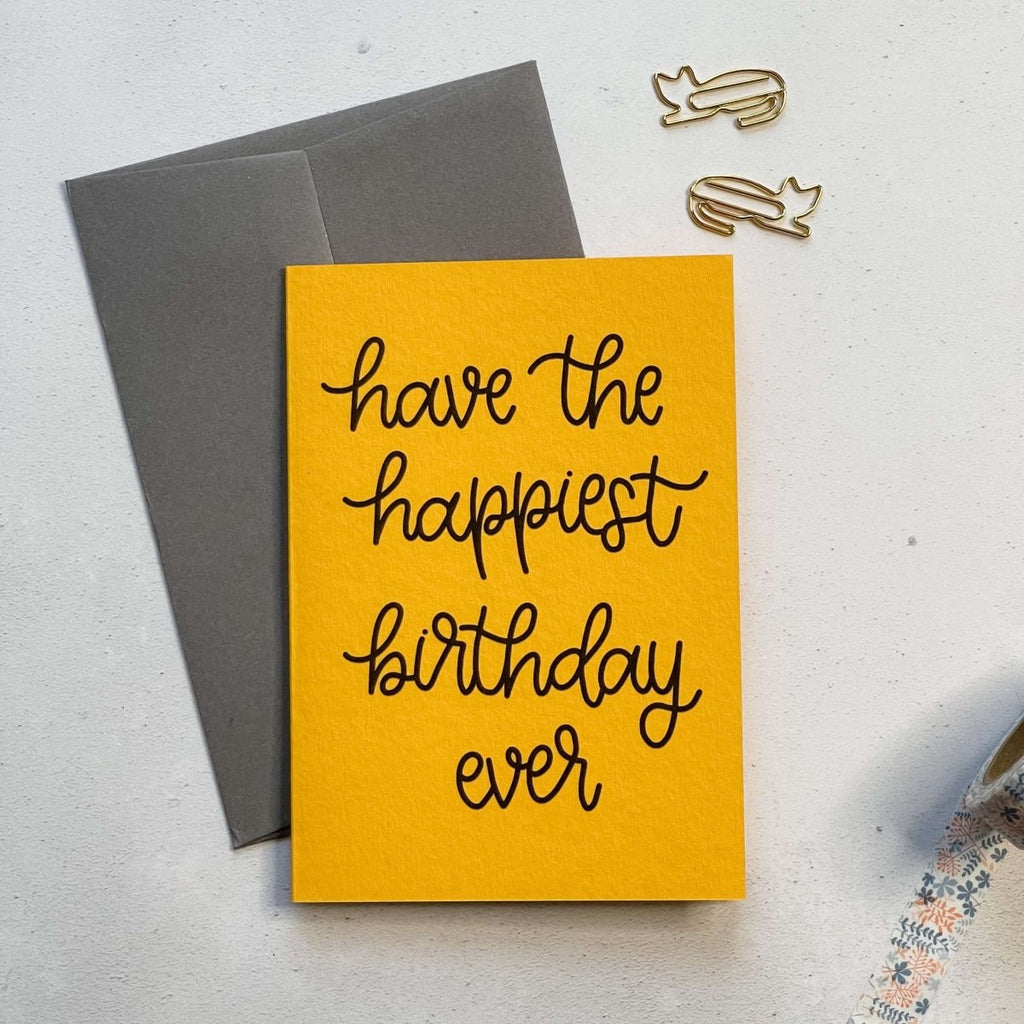 have the
happiest
birthday
ever